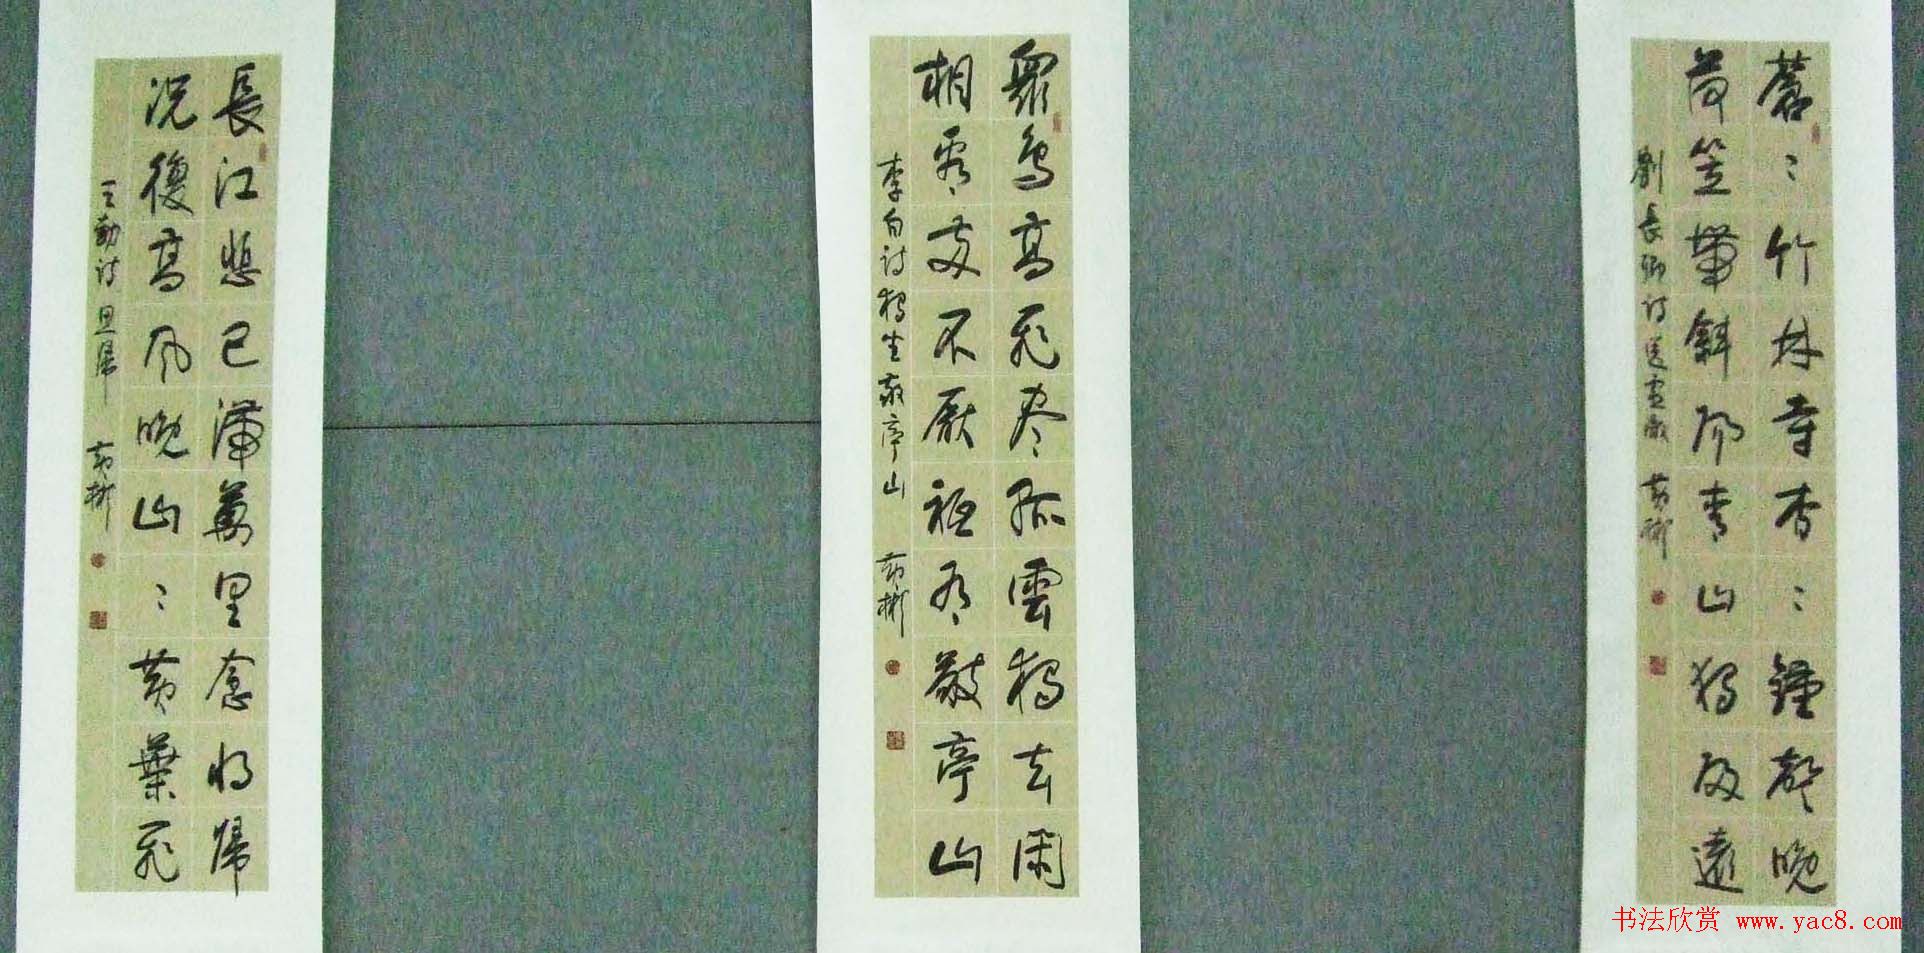 蒼〻竹林寺杳〻鐘聲晚
荷笠帶斜陽青山獨歸遠
劉長卿詩送靈澈 黄彬
眾鳥高飛盡孤雲獨去閑
相看兩不厭祗有敬亭山
李白詩獨坐敬亭山 黄彬
長江悲已滯萬里念將歸
況復高風晚山〻黄葉飛
王勃詩思歸 黄彬
书法欣赏 www.yac8.com